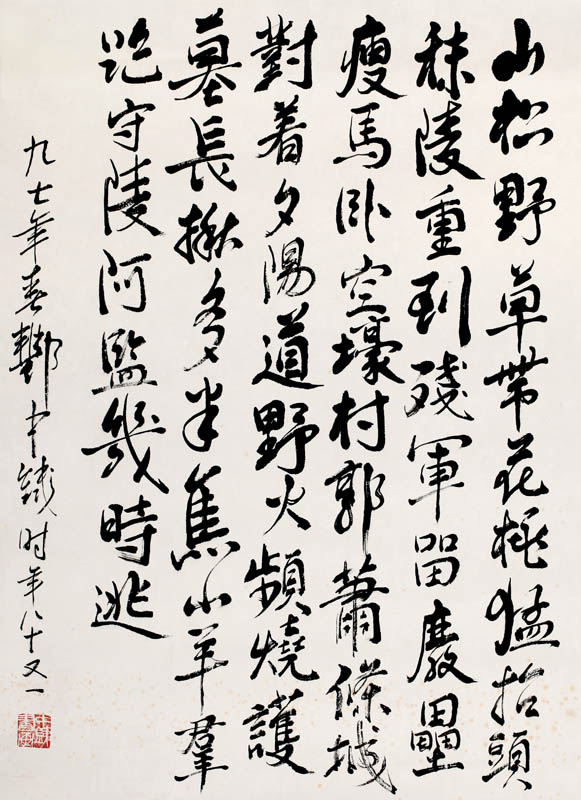 山松野草帶花挑猛抬頭
秣陵重到殘軍留廢壘
瘦馬卧空壕村郭蕭條城
對着夕陽道野火頻燒護
墓長楸多半焦山羊羣
跑守陵阿監幾時逃
九七年春酆中鐵时年八十又一